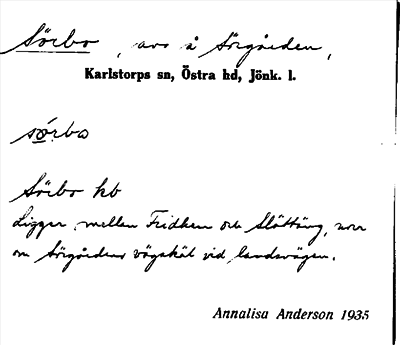 Sörbo, avs å Sörgården,
Karlstorps sn, Östra hd, Jönk. l.
sörbo
Sörbo hb
Ligger mellan Fridhem och Slättäng, norr
om Sörgårdens vägskäl vid landsvägen.
Annalisa Anderson 1935